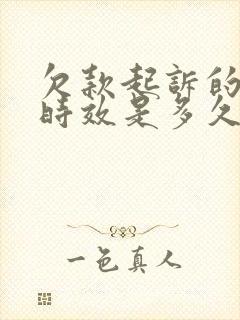 欠款起訴的
時效是多久
一色真人